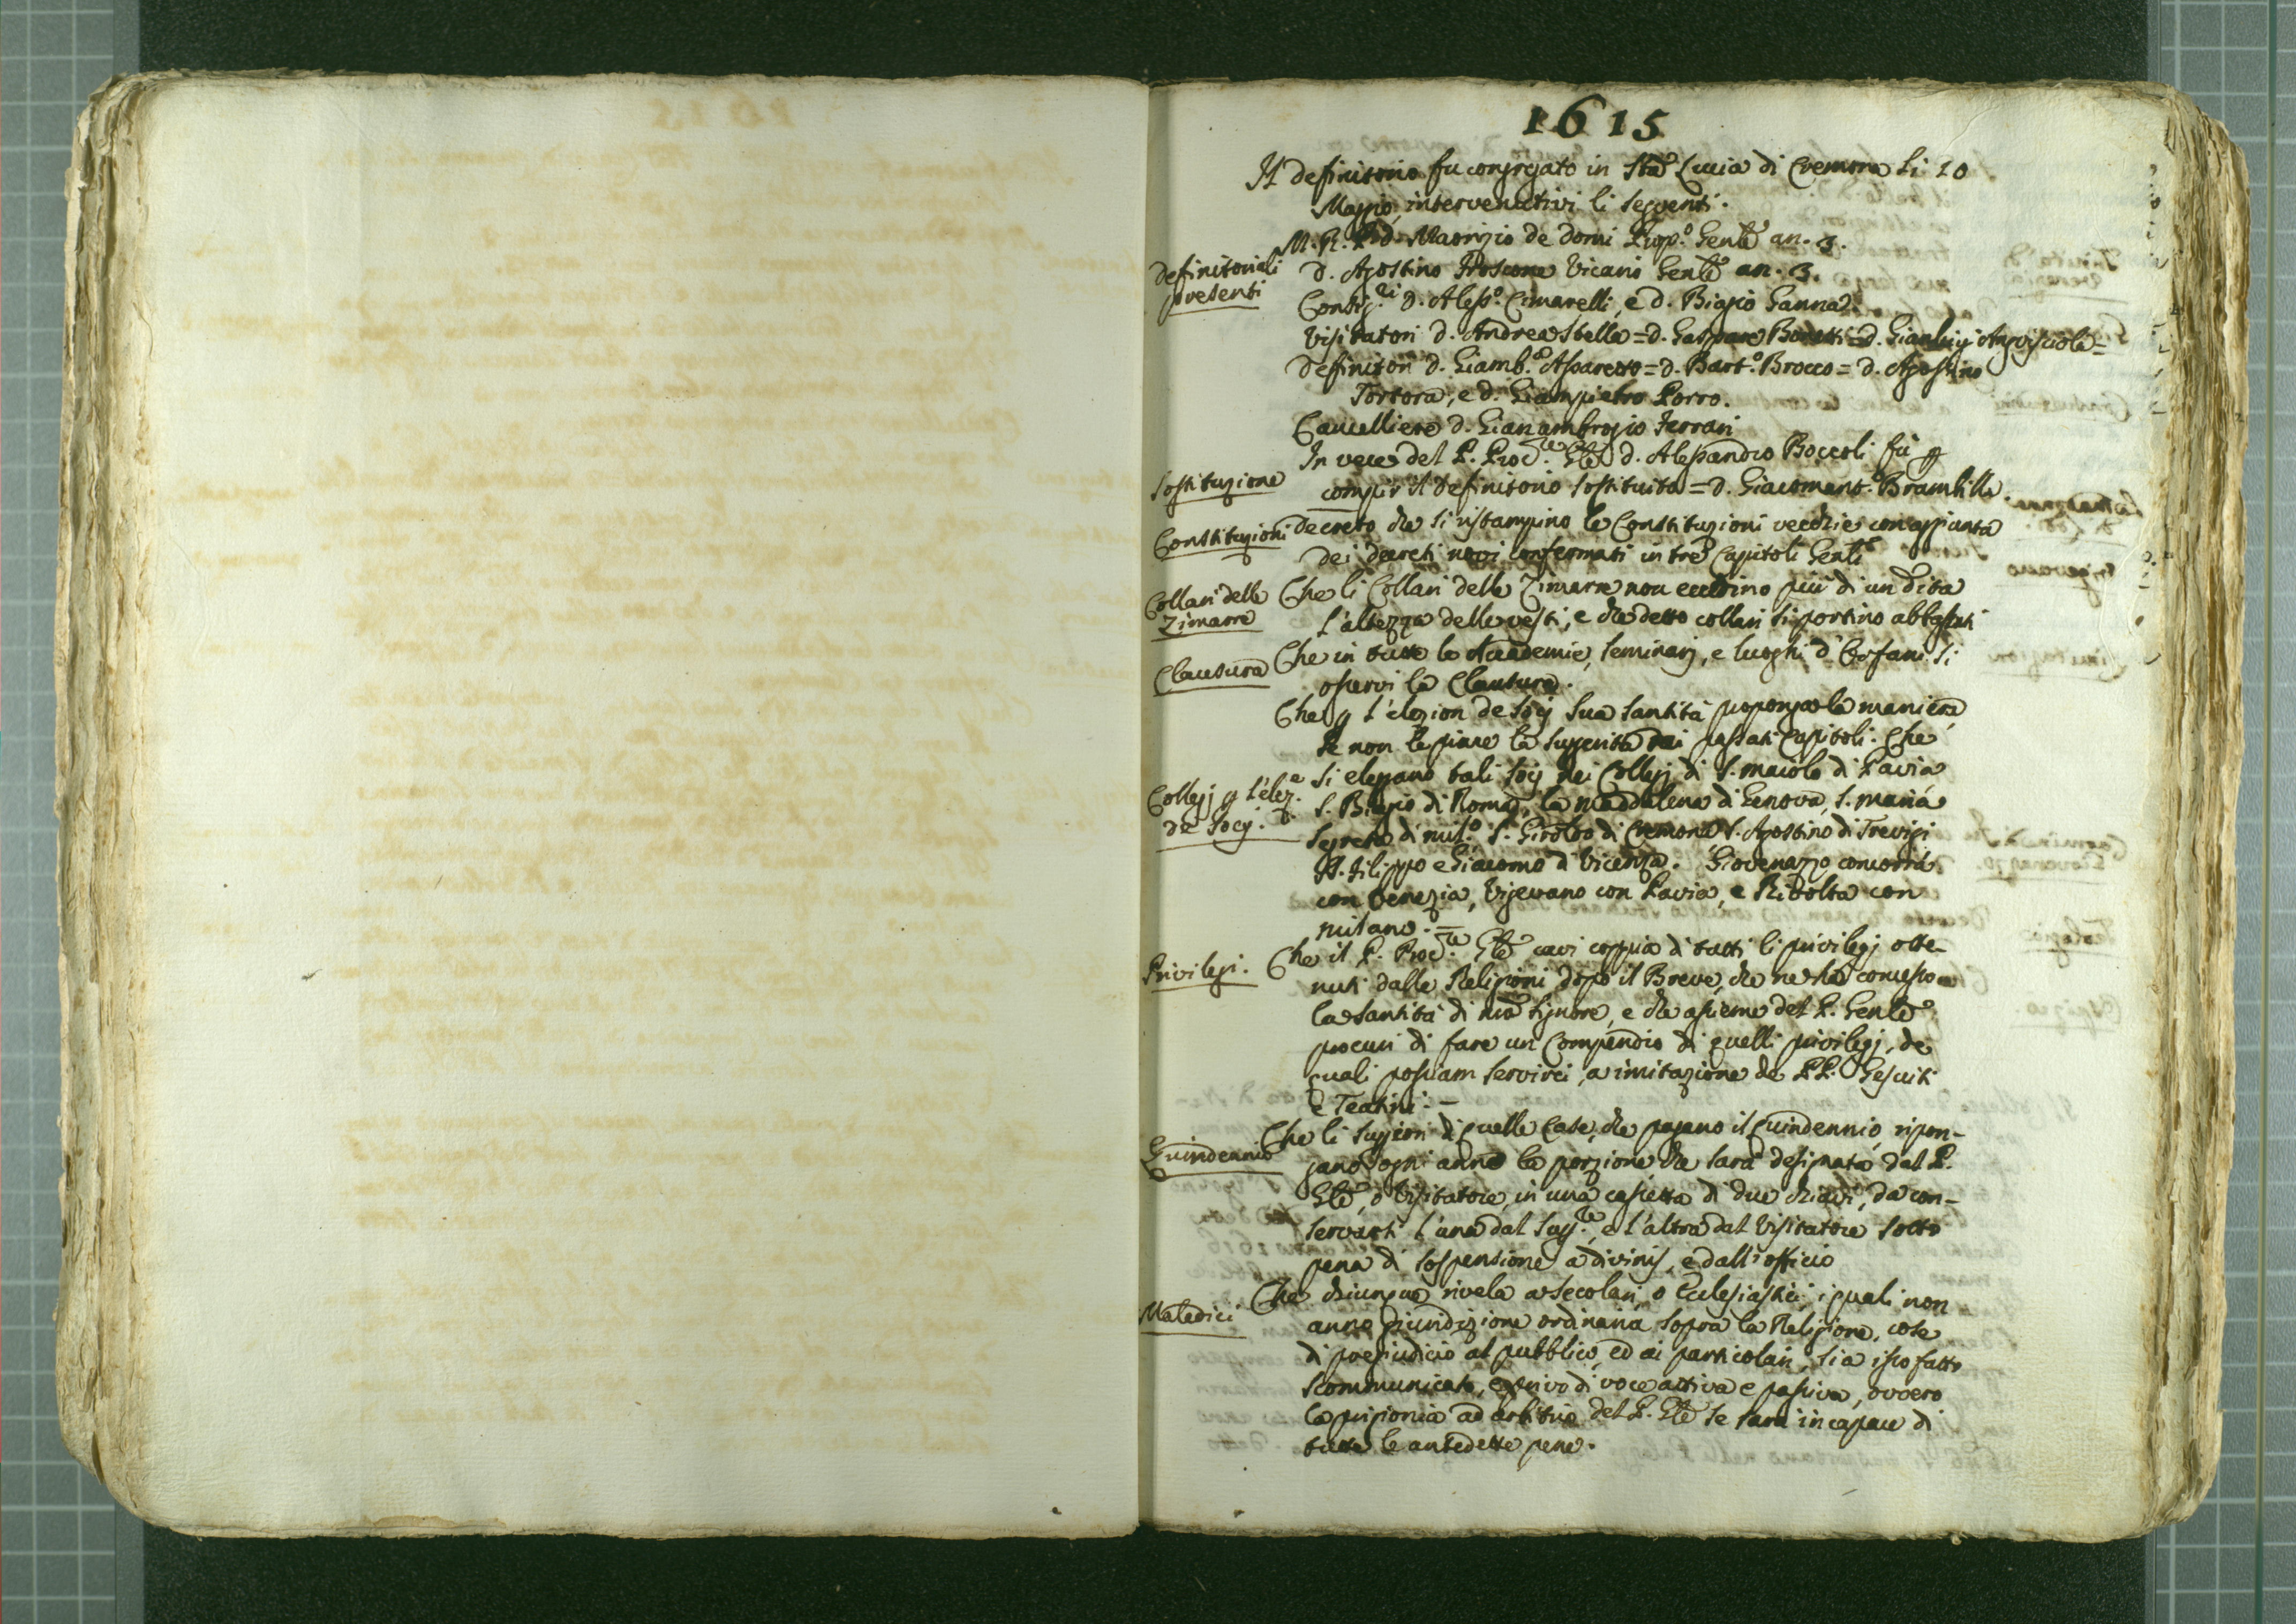 1615
Il definitorio fu congregato in Sta Lucia di Cremona li 10
Maggio, intervenutivi li seguenti.
M. R. P. d. Maorizio de domi Prep.o Genle an. 3.
definitoriali
presenti
d. Agostino Froscone Vicario Genle an. 3.
Consig.ri d. Aless.o Cimarelli, e d. Biagio Ganna
Visitatori d. Andrea Stella = d. Gaspare Boretti = d. Gianluigi Angosciola =
Definitori d. Giamb.a Assaretto = d. Bart.o Brocco = d. Agostino
Tortora, e d. Giampietro Porro.
Cancelliere d. Gianambrogio Ferrari
In vece del P. Proc.re Gle d. Alessandro Boccoli fù p
Sostituzione
compir il definitorio sostituito = d. Giacomant.o Brambilla
Constituzioni
Decreto che si ristampino le Constituzioni vecchie con aggiunta
dei decreti novi confermati in tre Capitoli Genli
Collari delle
Zimarre
Che li Collari delle Zimarre non eccedino più di un dito
l'altezza delle vesti, e che detto collari si portino abbassati
Clausura
Che in tutte le Accademie, Seminarj, e luoghi d'Orfani si
osservi la Clausura.
Che p l'elezion de Socj Sua Santità proponga la maniera,
se non le piace la suggerita dai passati Capitoli. Che
Collegj p l'elez.e
de Socj.
si eleggano tali Socj nei Collegj di S. Maiolo di Pavia
S. Biagio di Roma, la Maddalena di Genova, S. Maria
Segreta di Mil.o S. Girol.o di Cremona S. Agostino di Trevigi
SS. Filippo e Giacomo di Vicenza. Giovenazzo concorrà
con Venezia, Vigevano con Pavia, e Rivolta con
Milano. =
Privilegi.
Che il P. Proc.re Gle cavi coppia di tutti li privilegj otte-
nuti dalle Religioni dopo il Breve, che ne ha concesso
la Santità di nro Signore, e che assieme del P. Genle
procuri di fare un Compendio di quelli privilegj, de
quali possiam servirci, a imitazione de PP. Gesuiti
e Teatini. -
Quindennio
Che li Suggiori di quelle Case, che pagano il quindennio, ripon-
gano ogni anno la porzione che sarà designata dal P.
Gle, o Visitatore, in una cassetta di due chiavi, da con-
servarsi l'una dal Sup.re, e l'altra dal Visitatore sotto
pena di sospensione a divinis, e dall'officio
Maledici
Che chiunque rivela a secolari, o Ecclesiastici, i quali non
anno giuridizione ordinaria sopra la Religione, cose
di pregiudicio al pubblico, ed ai particolari, sia ipso fatto
scommunicato, e privo di voce attiva e passiva, ovvero
la prigionia ad arbitrio del P. Gle se sarà incapace di
tutte le antedette pene.